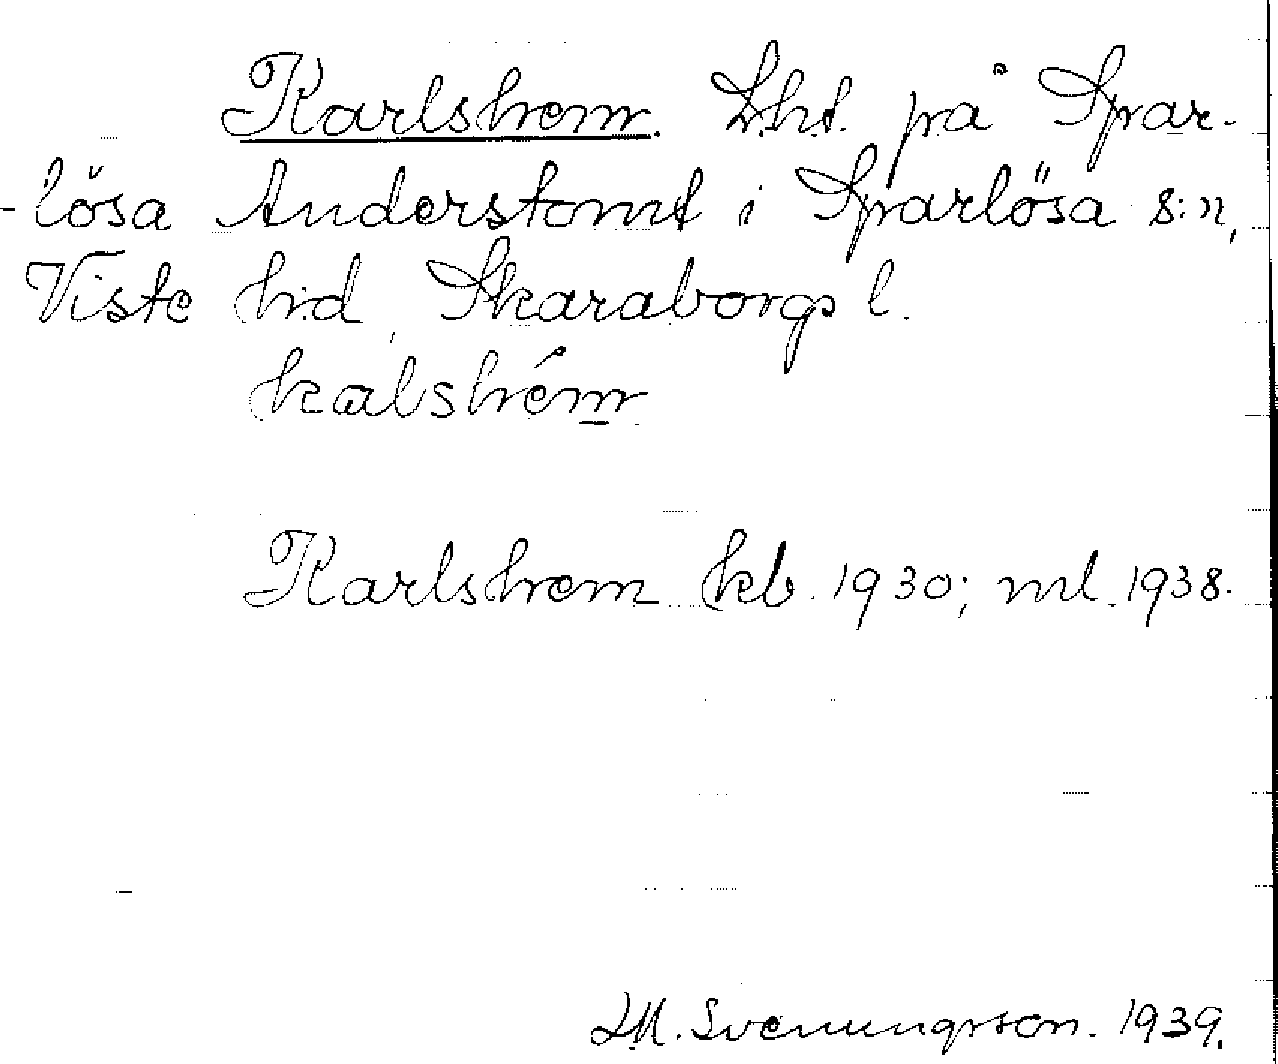 Karlshem. Lht. på Spar-
-lösa Anderstomt i Sparlösa s:n,
Viste hd, Skaraborgs l.
kalshém
Karlshem kb. 1930; ml. 1938.
L.M. Svenungsson. 1939.